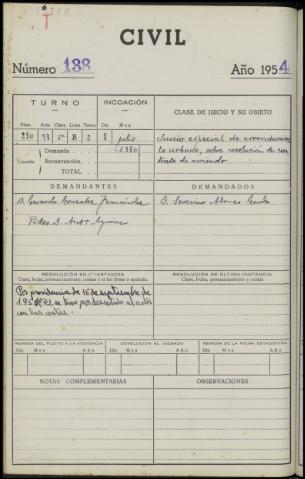 CIVIL
Número 138 Año 1954
TURNO
INCOACIÓN
CLASE DE JUICIO Y SU OBJETO
Núm. Acto Clase Letra Turno Día Mes
280 B 2 8 julio
Juicio especial de arrendamien
to urbano, sobre resolución de con
trato de arriendo
Cuantía
Demanda 1980
Reconvención
TOTAL
DEMANDANTES
DEMANDADOS
D. Gerardo Gonzalez Fernández
D. Severino Alonso
D. Antº
RESOLUCIÓN EN 1ª INSTANCIA
Clase, fecha, pronunciamiento, costas y si fué firme o apelada.
RESOLUCIÓN DE ÚLTIMA INSTANCIA
Clase, fecha, pronunciamiento y costas
Por providencia de 16 de septiembre de
195 se tuvo por desistido al actor
con las costas.-
REMESA DEL PLEITO A LA AUDIENCIA
DEVOLUCION AL JUZGADO
REMESA DE LA FICHA ESTADISTICA
Día Mes Año Día Mes Año Día Mes Año
NOTAS COMPLEMENTARIAS
OBSERVACIONES